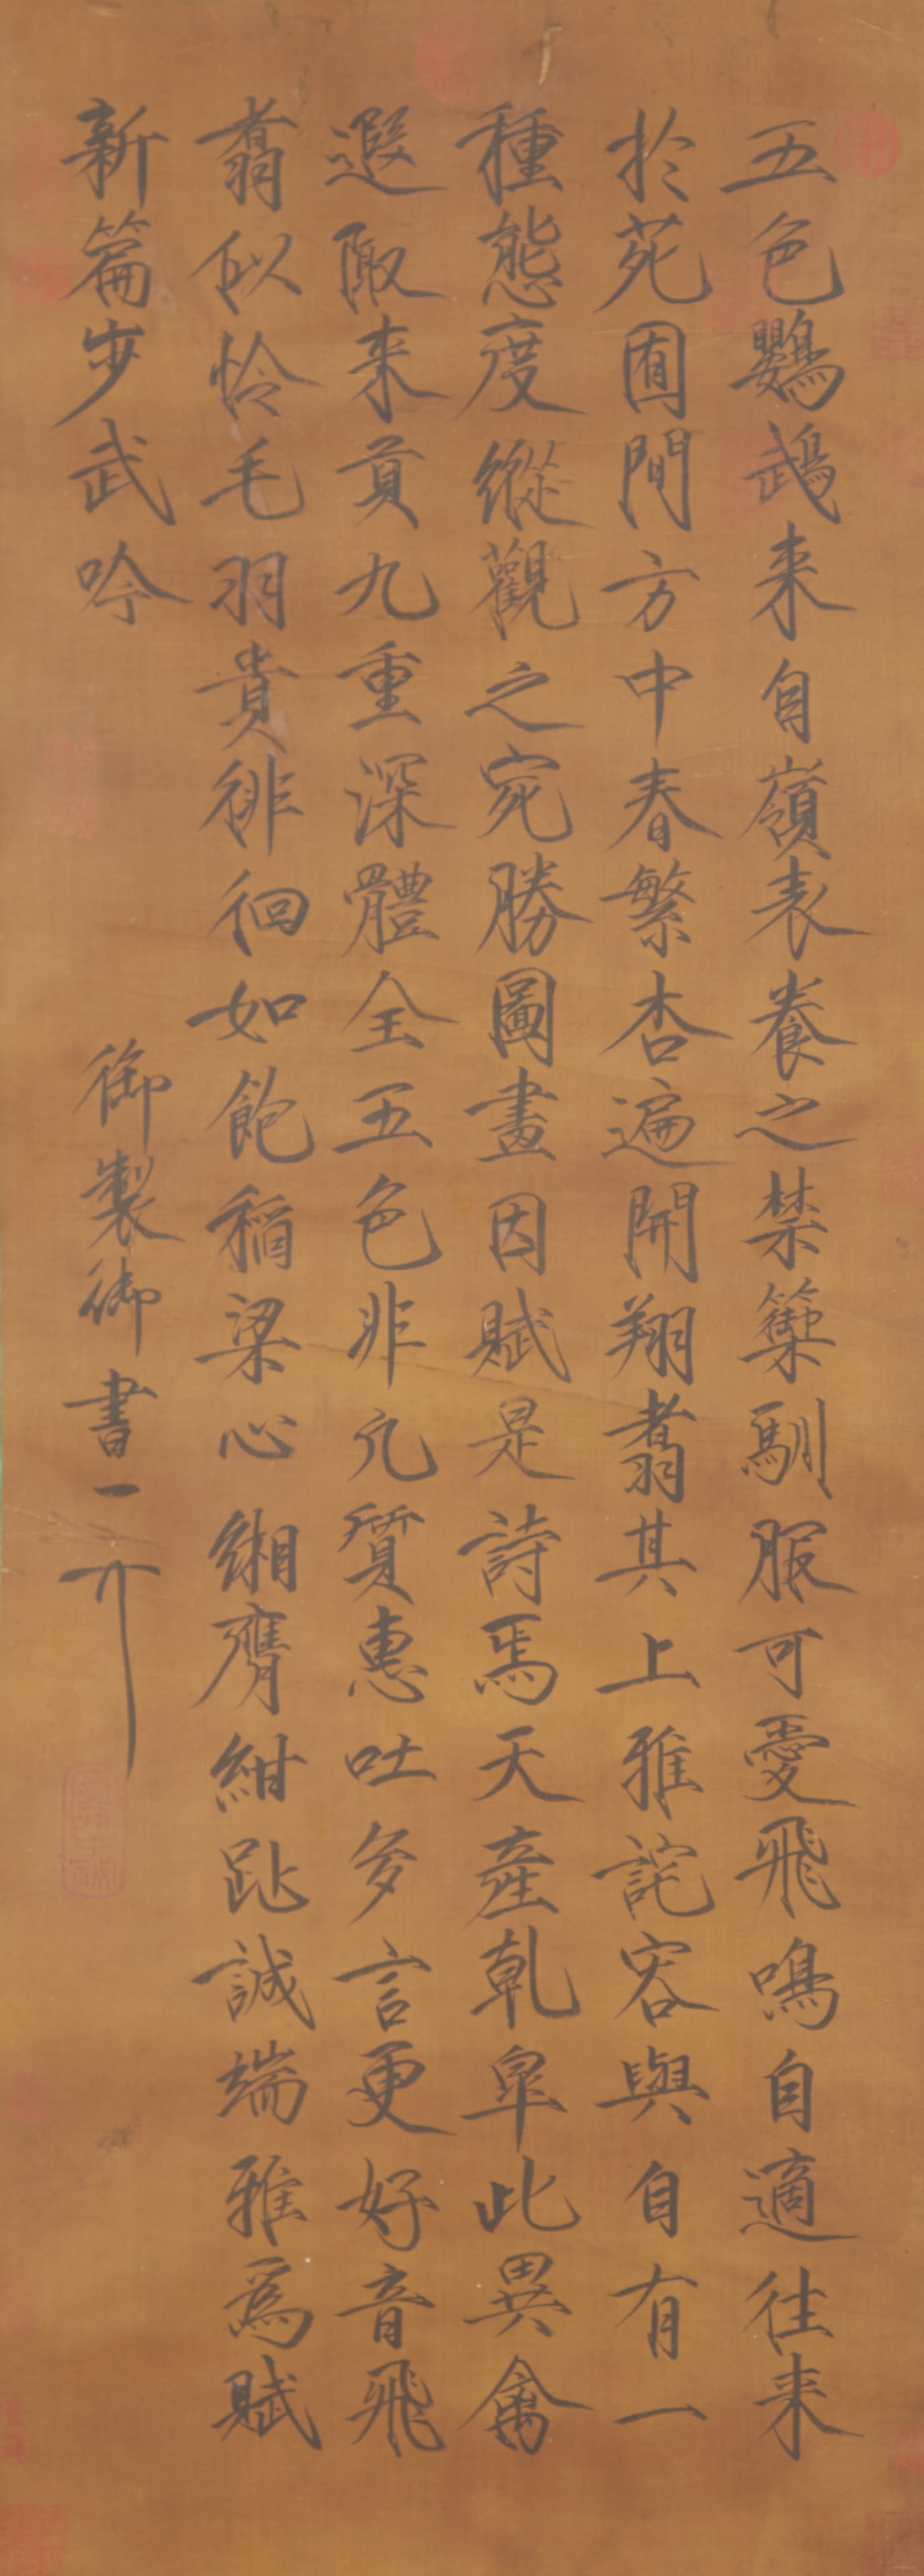 五色鸚鵡来自嶺表養之禁籞馴服可愛飛鳴自適往来
於苑囿間方中春繁杏遍開翔翥其上雅詫容與自有一
種態度縱觀之宛勝圖畫因賦是詩焉天產乾皐此異禽
遐陬来貢九重深體全五色非凡質惠吐多言更好音飛
翥似怜毛羽貴徘徊如飽稻粱心緗膺紺趾誠端雅為賦
新篇步武吟
御製御書一